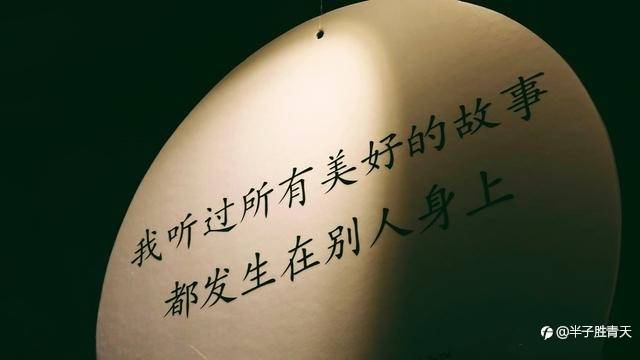 我听过所有美好的故事
都发生在别人身上
@半子胜青天